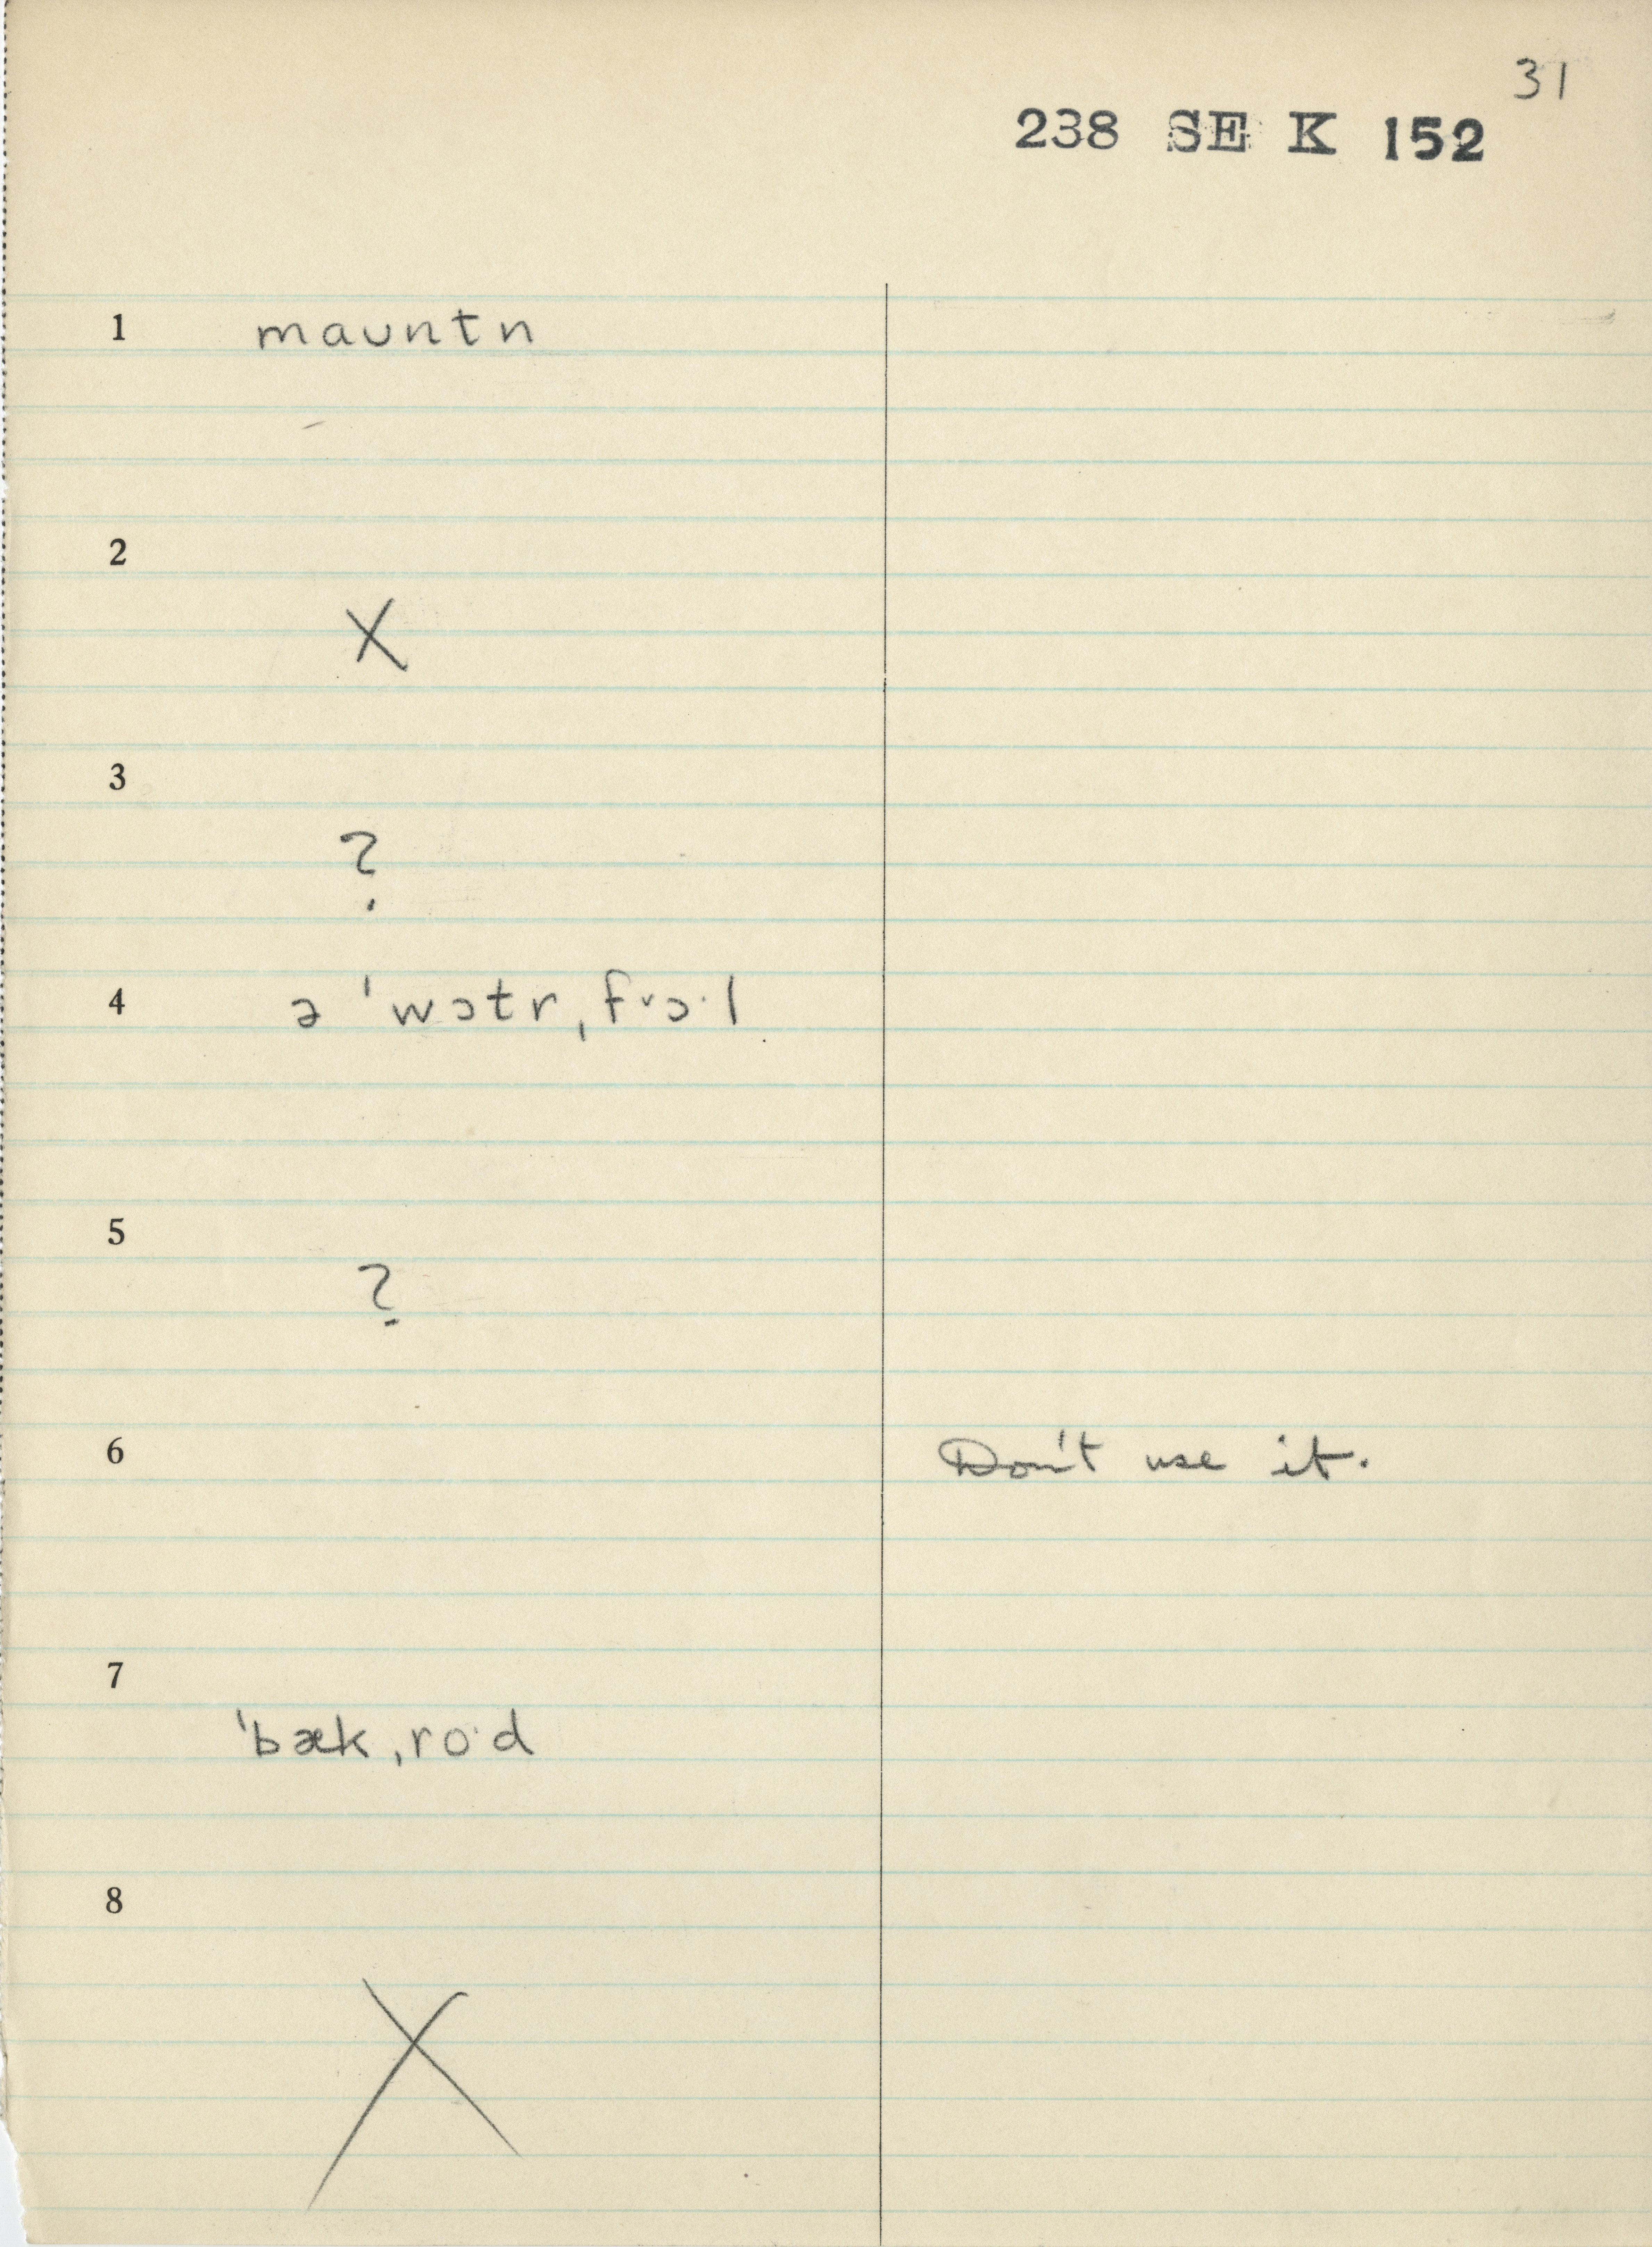 31
238 SE K 152
1 maʊntn
2
X
3
?
4 ə ˈwɔtr ˌfᵛɔ·l
5
?
6 Don't use it.
7
ˈbæk ˌro·d
8
X